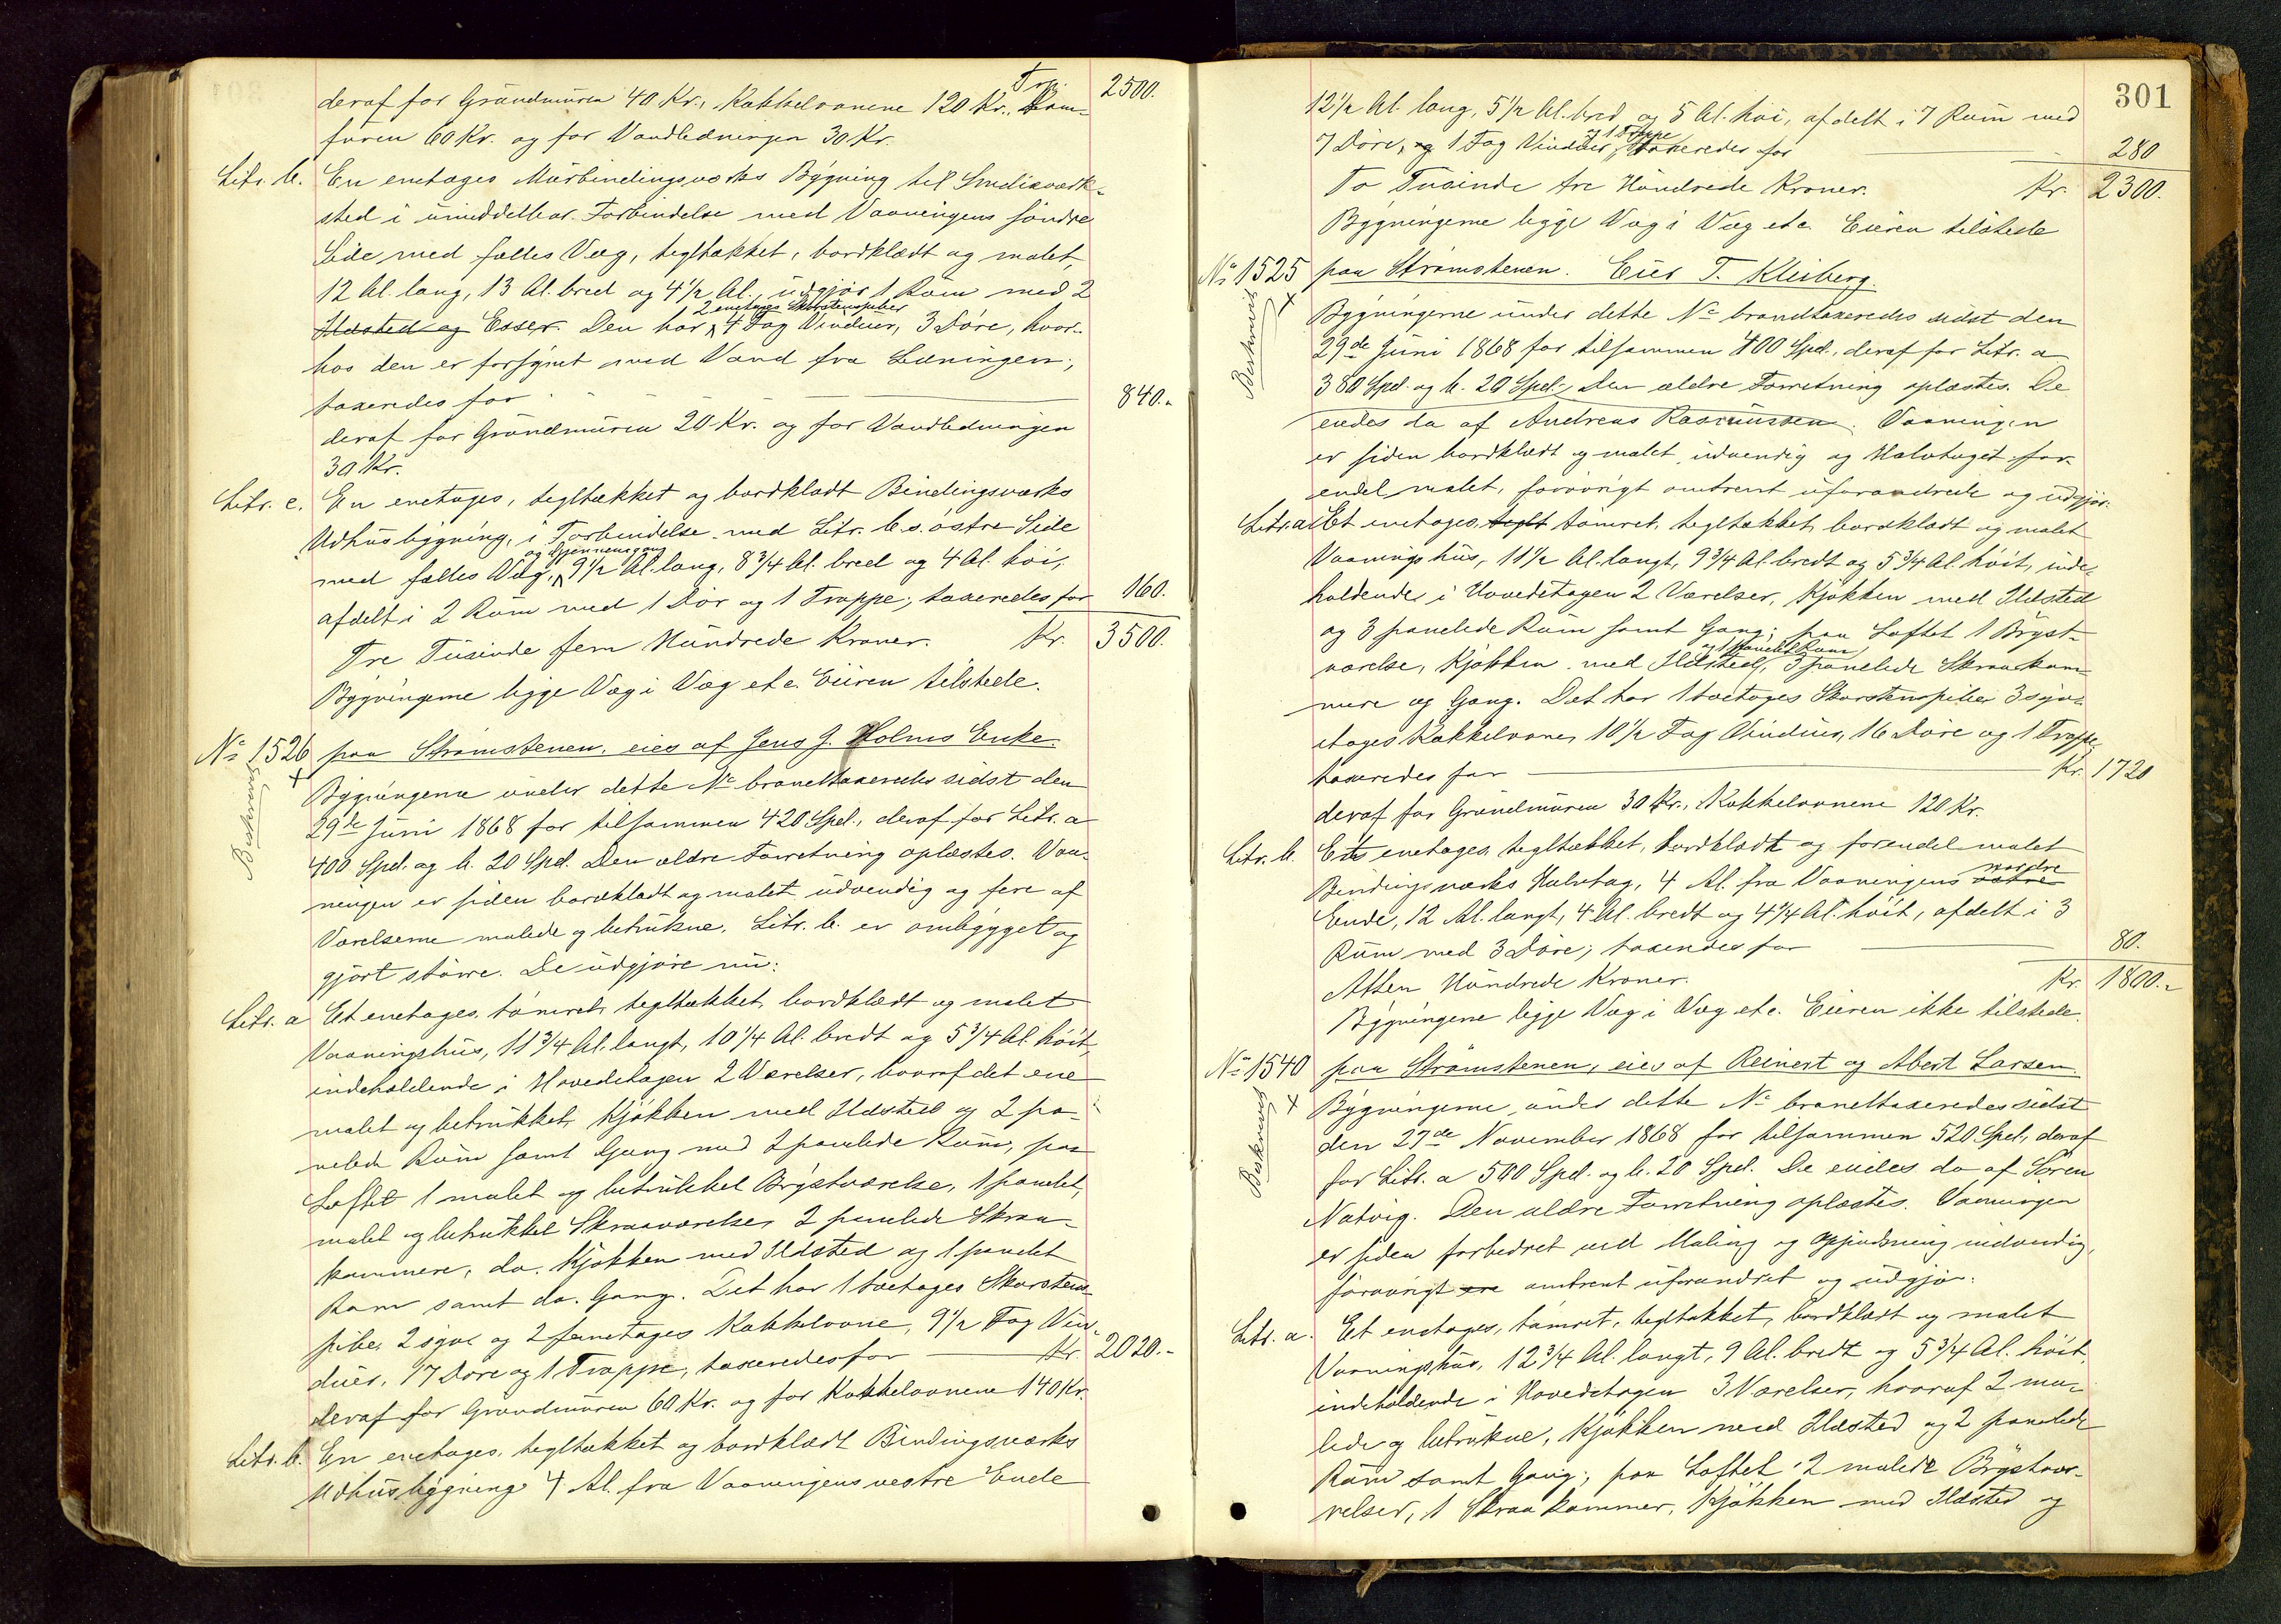 deraf for Grundmuren 40 Kr., Kakkelovnene 120 Kr., Kom- 2500.
furen 60 Kr. og for Vandledningen 30 Kr.
Litr. b. En enetages Murbindingsværks Bygning til Smedieværk-
sted i umiddelbar Forbindelse med Vaaningens søndre
Side med fælles Væg, tegltækket, bordklædt og malet,
12 Al. lang, 13 Al. bred og 4 1/2 Al., udgjør 1 Rum med 2
Ildsted og Esser. Den har 2 enetages Skorstenspiber 4 Fag Vinduer, 3 Døre, hvor-
hos den er forsynet med Vand fra Ledningen;
taxeredes for 840.-
deraf for Grundmuren 20 Kr. og for Vandledningen
30 Kr.
Litr. c. En enetages, tegltækket og bordklædt Bindingsværks
Udhusbygning, i Forbindelse med Litr. b.s. østre Side
med fælles Væg, og Gjennemgang 9 1/2 Al. lang, 8 3/4 Al. bred og 4 Al. høi,
afdelt i 2 Rum med 1 Dør og 1 Trappe, taxeredes for 160.
Tre Tusinde fem Hundrede Kroner. Kr. 3500.
Bygningerne ligge Væg i Væg etc. Eieren tilstede.
No 1526 paa Strømstenen, eies af Jens J. Holms Enke.
Beskrevet
Bygningerne under dette No brandtaxeredes sidst den
29de Juni 1868 for tilsammen 420 Spd., deraf for Litr. a
400 Spd. og b. 20 Spd. Den ældre Forretning oplæstes. Vaa-
ningen er siden bordklædt og malet udvendig og flere af
Værelserne malede og betrukne. Litr. b. er ombygget og
gjort større. De udgjøre nu:
Litr. a Et enetages, tømret, tegltækket, bordklædt og malet
Vaaningshus, 11 3/4 Al. langt, 10 1/4 Al. bredt og 5 3/4 Al. høit,
indeholdende i Hovedetagen 2 Værelser, hvoraf det ene
malet og betrukket, Kjøkken med Ildsted og 2 pa-
nelede Rum samt Gang med 2 panelede Rum, paa
Loftet 1 malet og betrukket Brystværelse, 1 panelet,
malet og betrukket Skraaværelse, 2 panelede Skraa-
kammere, do. Kjøkken med Ildsted og 1 panelet
Rum samt do. Gang. Det har 1 toetages Skorstens-
pibe, 2 og 2 Kakkelovne, 9 1/2 Fag Vin-
duer, 17 Døre og 1 Trappe, taxeredes for Kr. 2020.-
deraf for Grundmuren 60 Kr. og for Kakkelovnene 140 Kr.
Litr. b. En enetages, tegltækket og bordklædt Bindingsværks
Udhusbygning 4 Al. fra Vaaningens vestre Ende
301
12 1/2 Al. lang, 5 1/2 Al. bred og 5 Al. høi, afdelt i 7 Rum med
7 Døre, og 1 Fag Vinduer, og 1 Trappe taxeredes for 280
To Tusinde tre Hundrede Kroner. Kr. 2300.
Bygningerne ligge Væg i Væg etc. Eieren tilstede
No 1525 paa Strømstenen. Eier T. Kleiberg.
Beskrevet
Bygningerne under dette No brandtaxeredes sidst den
29de Juni 1868 for tilsammen 400 Spd., deraf for Litr. a
380 Spd. og b. 20 Spd. Den ældre Forretning oplæstes. De
eiedes da af Andreas Rasmussen. Vaaningen
er siden bordklædt og malet udvendig og Halvtaget for-
endel malet, forøvrigt omtrent uforandrede og udgjør:
Litr. a Et enetages, teglt tømret, tegltækket, bordklædt og malet
Vaaningshus, 11 1/2 Al. langt, 9 3/4 Al. bredt og 5 3/4 Al. høit, inde-
holdende i Hovedetagen 2 Værelser, Kjøkken med Ildsted
og 3 panelede Rum samt Gang; paa Loftet 1 Bryst-
værelse, Kjøkken med Ildsted, og 1 panelet Rum 3 panelede Skraakam-
mere og Gang. Det har 1 toetages Skorstenspibe 3 syv-
etages Kakkelovne, 10 1/2 Fag Vinduer, 16 Døre og 1 Trappe,
taxeredes for Kr. 1720
deraf for Grundmuren 30 Kr., Kakkelovnene 120 Kr.
Litr. b. Et enetages, tegltækket, bordklædt og forendel malet
Bindingsværks Halvtag, 4 Al. fra Vaaningens østre nordre
Ende, 12 Al. langt, 4 Al. bredt og 4 1/4 Al. høit, afdelt i 3
Rum med 3 Døre; taxeredes for 80.
Atten Hundrede Kroner. Kr. 1800.-
Bygningerne ligge Væg i Væg etc. Eieren ikke tilstede.
No 1540 paa Strømstenen, eies af Reinert og Abert Larsen.
Beskrevet
Bygningerne under dette No brandtaxeredes sidst
den 27de November 1868 for tilsammen 520 Spd., deraf
for Litr. a 500 Spd. og b. 20 Spd. De eiedes da af Søren
Natvig. Den ældre Forretning oplæstes. Vaaningen
er siden forbedret med Maling og indvendig,
forøvrigt ere omtrent uforandret og udgjør:
Litr. a. Et enetages, tømret, tegltækket, bordklædt og malet
Vaaningshus, 12 3/4 Al. langt, 9 Al. bredt og 5 3/4 Al. høit,
indeholdende i Hovedetagen 3 Værelser, hvoraf 2 ma-
lede og betrukne, Kjøkken med Ildsted og 2 panelede
Rum samt Gang; paa Loftet 2 malede Brystvæ-
relser, 1 Skraakammer, Kjøkken med Ildsted og